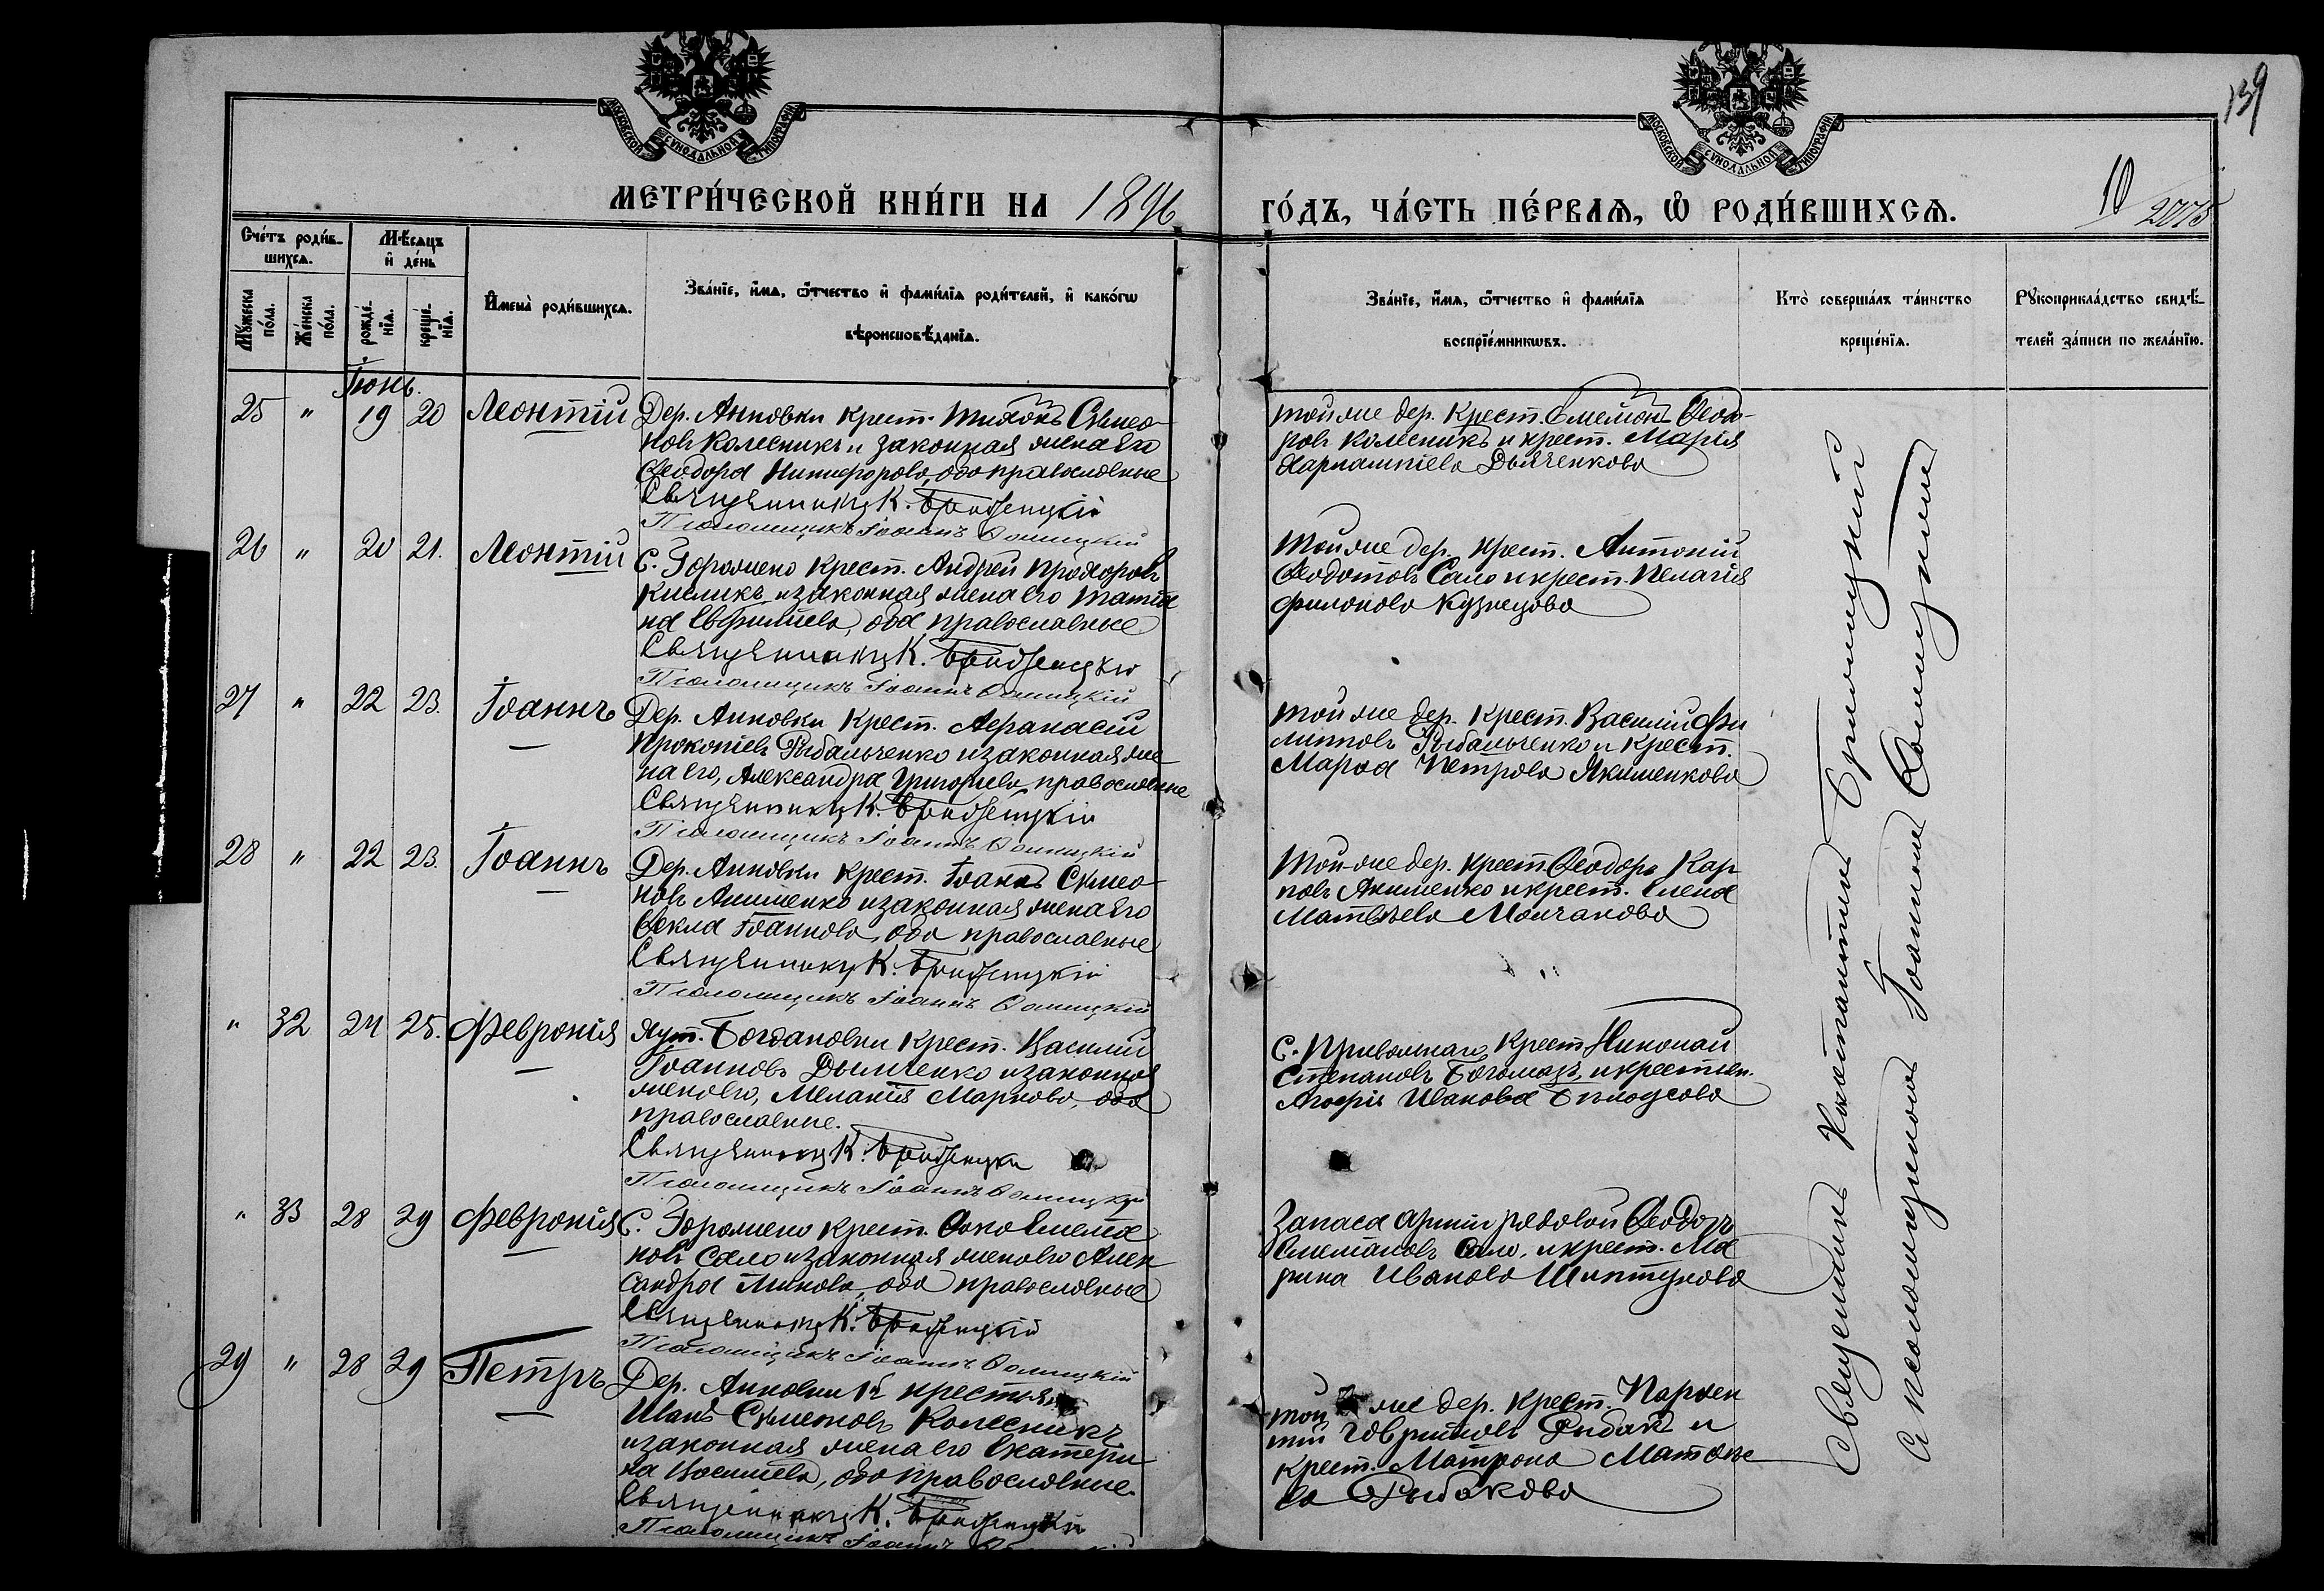 139
МОСКОВСКОЙ СѴНОДАЛЬНОЙ ТИПОГРАФІИ
МОСКОВСКОЙ СѴНОДАЛЬНОЙ ТИПОГРАФІИ
МЕТРИ́ЧЕСКОЙ КНИ́ГИ НА 1896
ГО́ДЪ, ЧА́СТЬ ПЕ́РВАѦ, Ѡ҆ РОДИ́ВШИХСѦ.
10
2075
Сче́тъ роди́в-
шихсѧ.
Мѣ́сѧцъ
и҆ де́нь
Мꙋ́жеска
по́ла.
Же́нска
по́ла.
рожде́-
нїѧ.
креще́-
нїѧ.
И҆мена̀ роди́вшихсѧ.
Зва́нїе, и҆́мѧ, ѻ҆́тчество и҆ фами́лїѧ роди́телей, и҆ како́гѡ
вѣроисповѣ́данїѧ.
Зва́нїе, и҆́мѧ, ѻ҆́тчество и҆ фами́лїѧ
воспрїе́мникѡвъ.
Кто̀ соверша́лъ та́инство
креще́нїѧ.
Рꙋкоприкла́дство свидѣ́-
телей за́писи по жела́нїю.
Іюнь.
25 " 19 20 Леонтій
Дер. Анновки крест. Тихонъ Симео-
новъ Колесникъ и законная жена его
Ѳеодора Никифорова, оба православные
Священникъ К.
Псаломщикъ Іоаннъ
той же дер. крест. Симеонъ Ѳеодо-
ровъ Колесникъ и крест. Марія
Харлампіева Дьяченкова
26 " 20 21. Леонтій
С. Горожено крест. Андрей Прохоровъ
Кисликъ и законная жена его Татіа
на Евфиміева, оба православные
Священникъ К.
Псаломщикъ Іоаннъ
Той же дер. крест. Антоній
Ѳеодотовъ Сало и крест. Пелагія
Филонова Кузнецова
27 " 22 23. Іоаннъ
Дер. Анновки крест. Афанасій
Прокопіевъ Рыбальченко и законная же
на его, Александра Григорьева православные
Священникъ К.
Псаломщикъ Іоаннъ
той же дер. крест. Василій Фи
липповъ Рыбальченко и крест.
Марѳа Петрова Якименкова
28 " 22 23. Іоаннъ
Дер. Анновки крест. Іоаннъ Симео-
новъ Акименко и законная жена его
Ѳекла Іоаннова, оба православные
Священникъ К.
Псаломщикъ Іоаннъ
Той-же дер. крест. Ѳеодоръ Кар
повъ Акименко и крест. Елена
Матвѣева Молчанова
" 32 24 25. Февронія
Хут. Богдановки крест. Василій
Іоанновъ Дьяченко и законная
жена его, Меланія Маркова, оба
православные.
Священникъ К.
Псаломщикъ Іоаннъ
С. Привольнаго крест. Николай
Степановъ Богомазъ, и крестьян.
Агафія Иванова Бѣлоусова
" 33 28 29 Февронія
С. Горожено крест. Фока
новъ Сало и законная жена его Алек
сандра Минова, оба православные
Священникъ К.
Псаломщикъ Іоаннъ
Запаса арміи рядовой Ѳеодоръ
Сало, и крест. Ма
рина Иванова
29 " 28 29 Петръ
Дер. Анновки 1й крестьян.
Иванъ Симеоновъ Колесникъ
и законная жена его Екатери
на Васильева, оба православные.
Священникъ К.
Псаломщикъ Іоаннъ
той же дер. крест. Парѳен
тій Гавриловъ Рыбакъ и
крест. Матрона Матвѣе
ва Рыбакова
Священникъ Константинъ
и псаломщикъ Іоаннъ